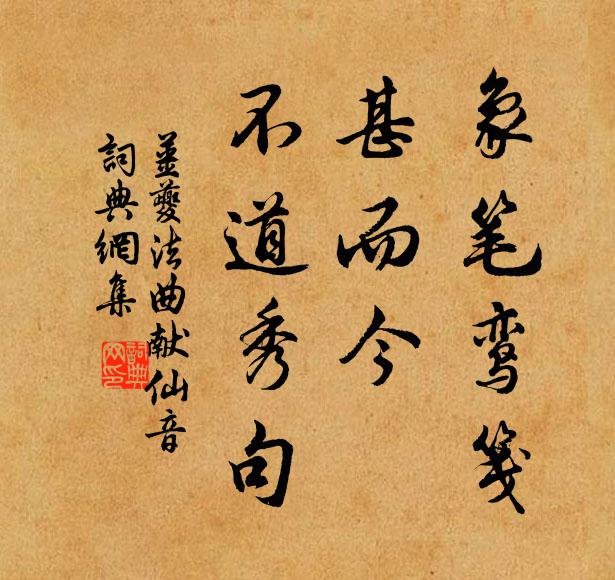 象笔鸾笺
甚而今
不道秀句
姜夔法曲献仙音
詞典網集